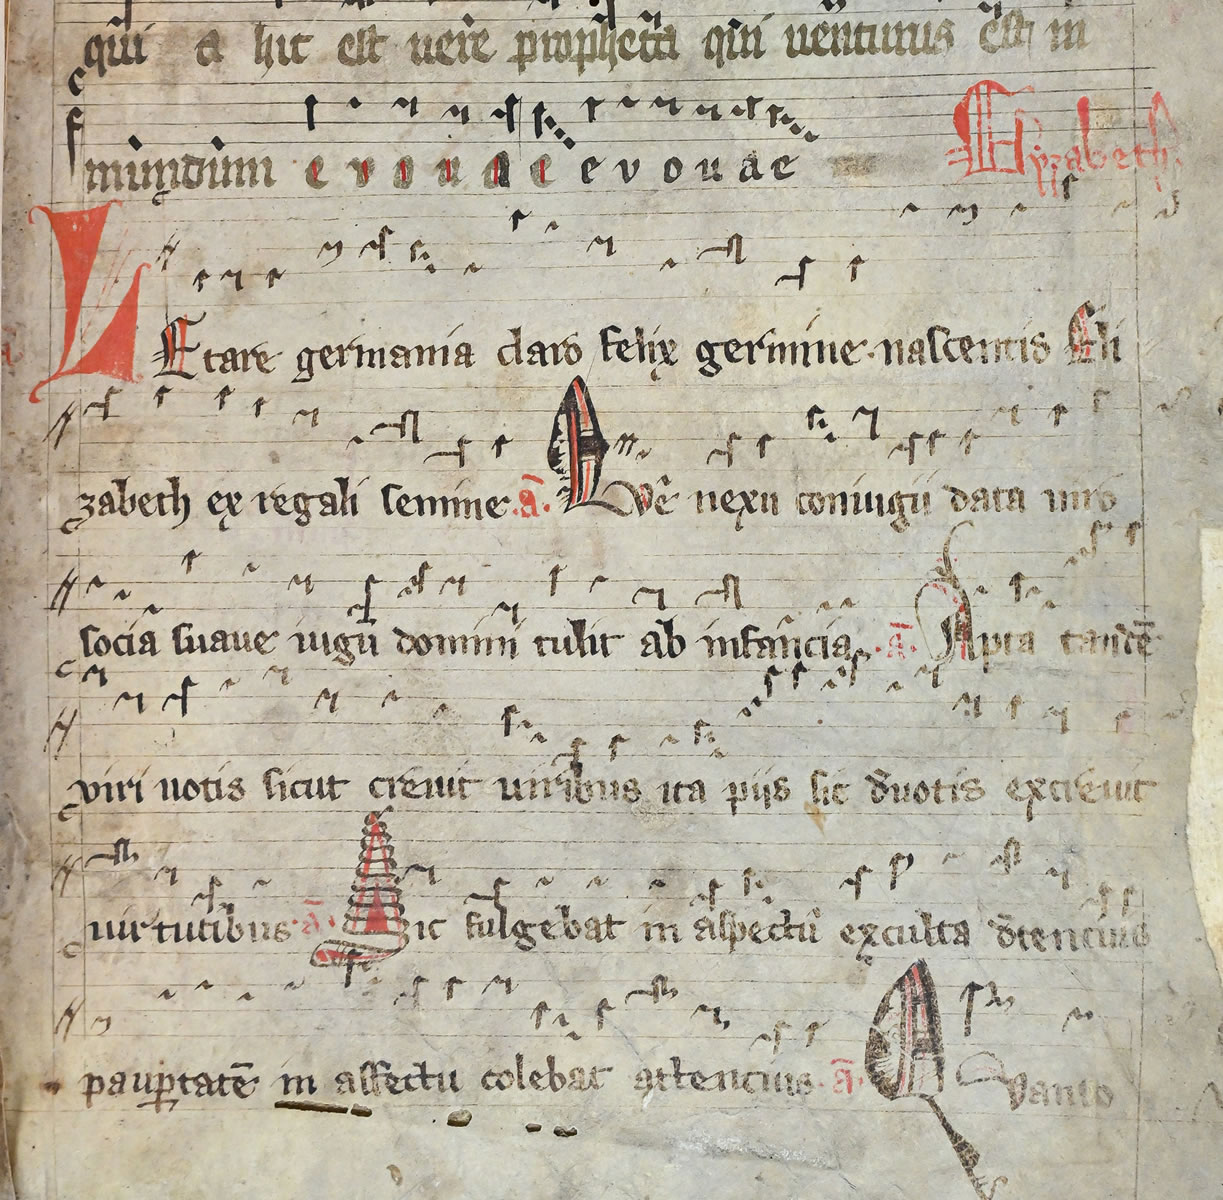 qui a hic est uere propheta qui uenturus est in
mundum e v o u a e e v o u a e Elyzabeth.
LEtare germania claro felix germine nascentis Eli
zabeth ex regali semine. a. Que nexu coniugii data uiro
socia suaue iugu domini tulit ab infancia. a. Apta tande
viri uotis sicut creuit uiribus ita piis sic deuotis excreuit
uirtutibus a. Hic fulgebat in aspectu exculta dtencius
paup̱tatē in affectu colebat attencius. a. Quanto